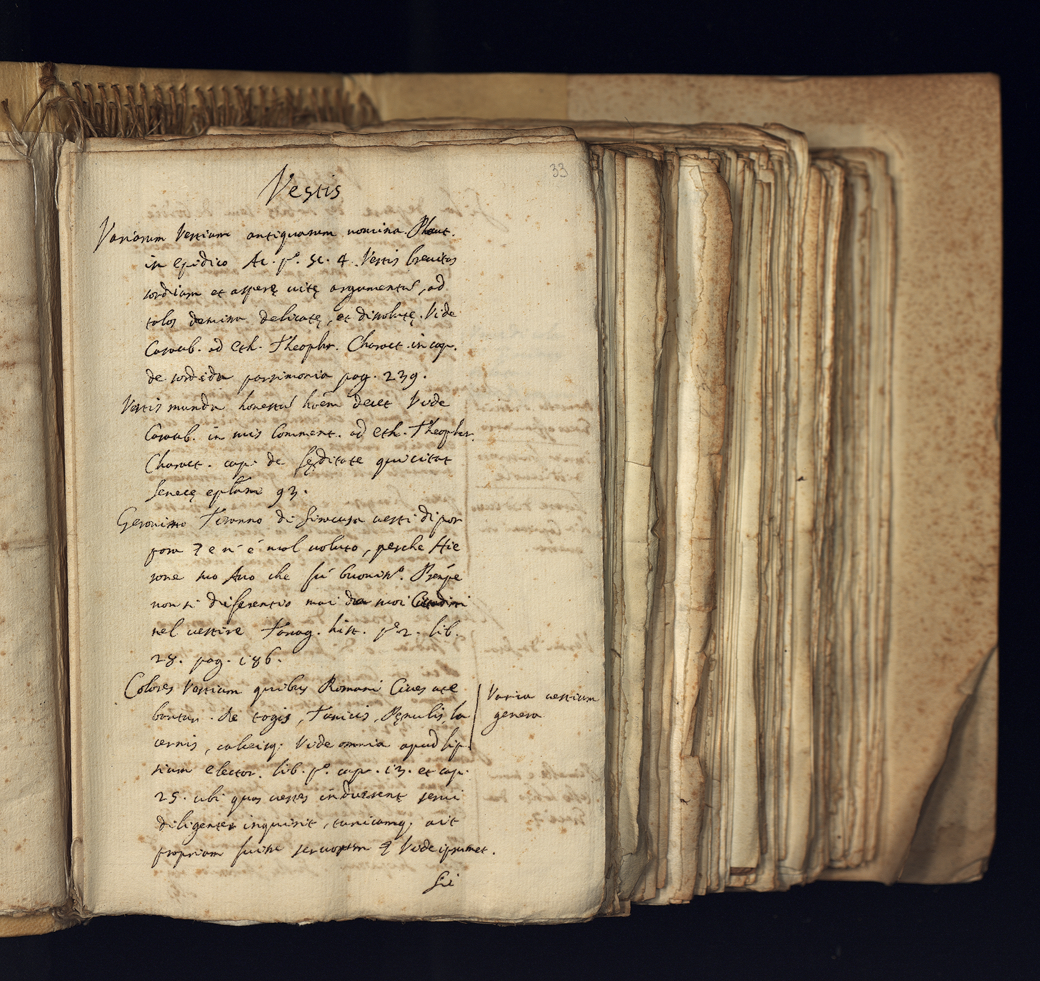 33
Vestis
Variorum Vestium antiquarum nomina Plaut.
in epidico Ac. pº. Sc. 4. Vestis brevitas
sordium et asperę uitę argumentū, ad
talos demissa delicatę, et dissolutę. Vide
Casaub. ad eth. Theophr. Charact. in cap.
de sordida parsimonia pag. 239.
Vestis munda honestū hoēm decet Vide
Casaub. in suis Comment. ad eth. Theophr.
Charact. cap. de fęditate qui citat
Senecę eplam 93.
Geronimo Tiranno di Siracusa vesti di por
pora
mal uoluto, perche Hie
rone suo Auo che fú buonisº. Prēpe
non si diferentio mai da suoi Cittadini
nel uestire Tarcag. hist. pº 2. lib.
28. pag. 186.
Colores Vestium quibus Romani Ciues ute
bantur. de togis, Tunicis, Pęnulis, la
cernis, calceisq; Vide omnia apud lip
sium elector. lib. pº. cap. 13. et cap.
25. ubi quas uestes induerent serui
diligenter inquirit, tunicamq; ait
propriam fuisse seruorum Vide ipsumet.
Varia uestium
genera
Sie